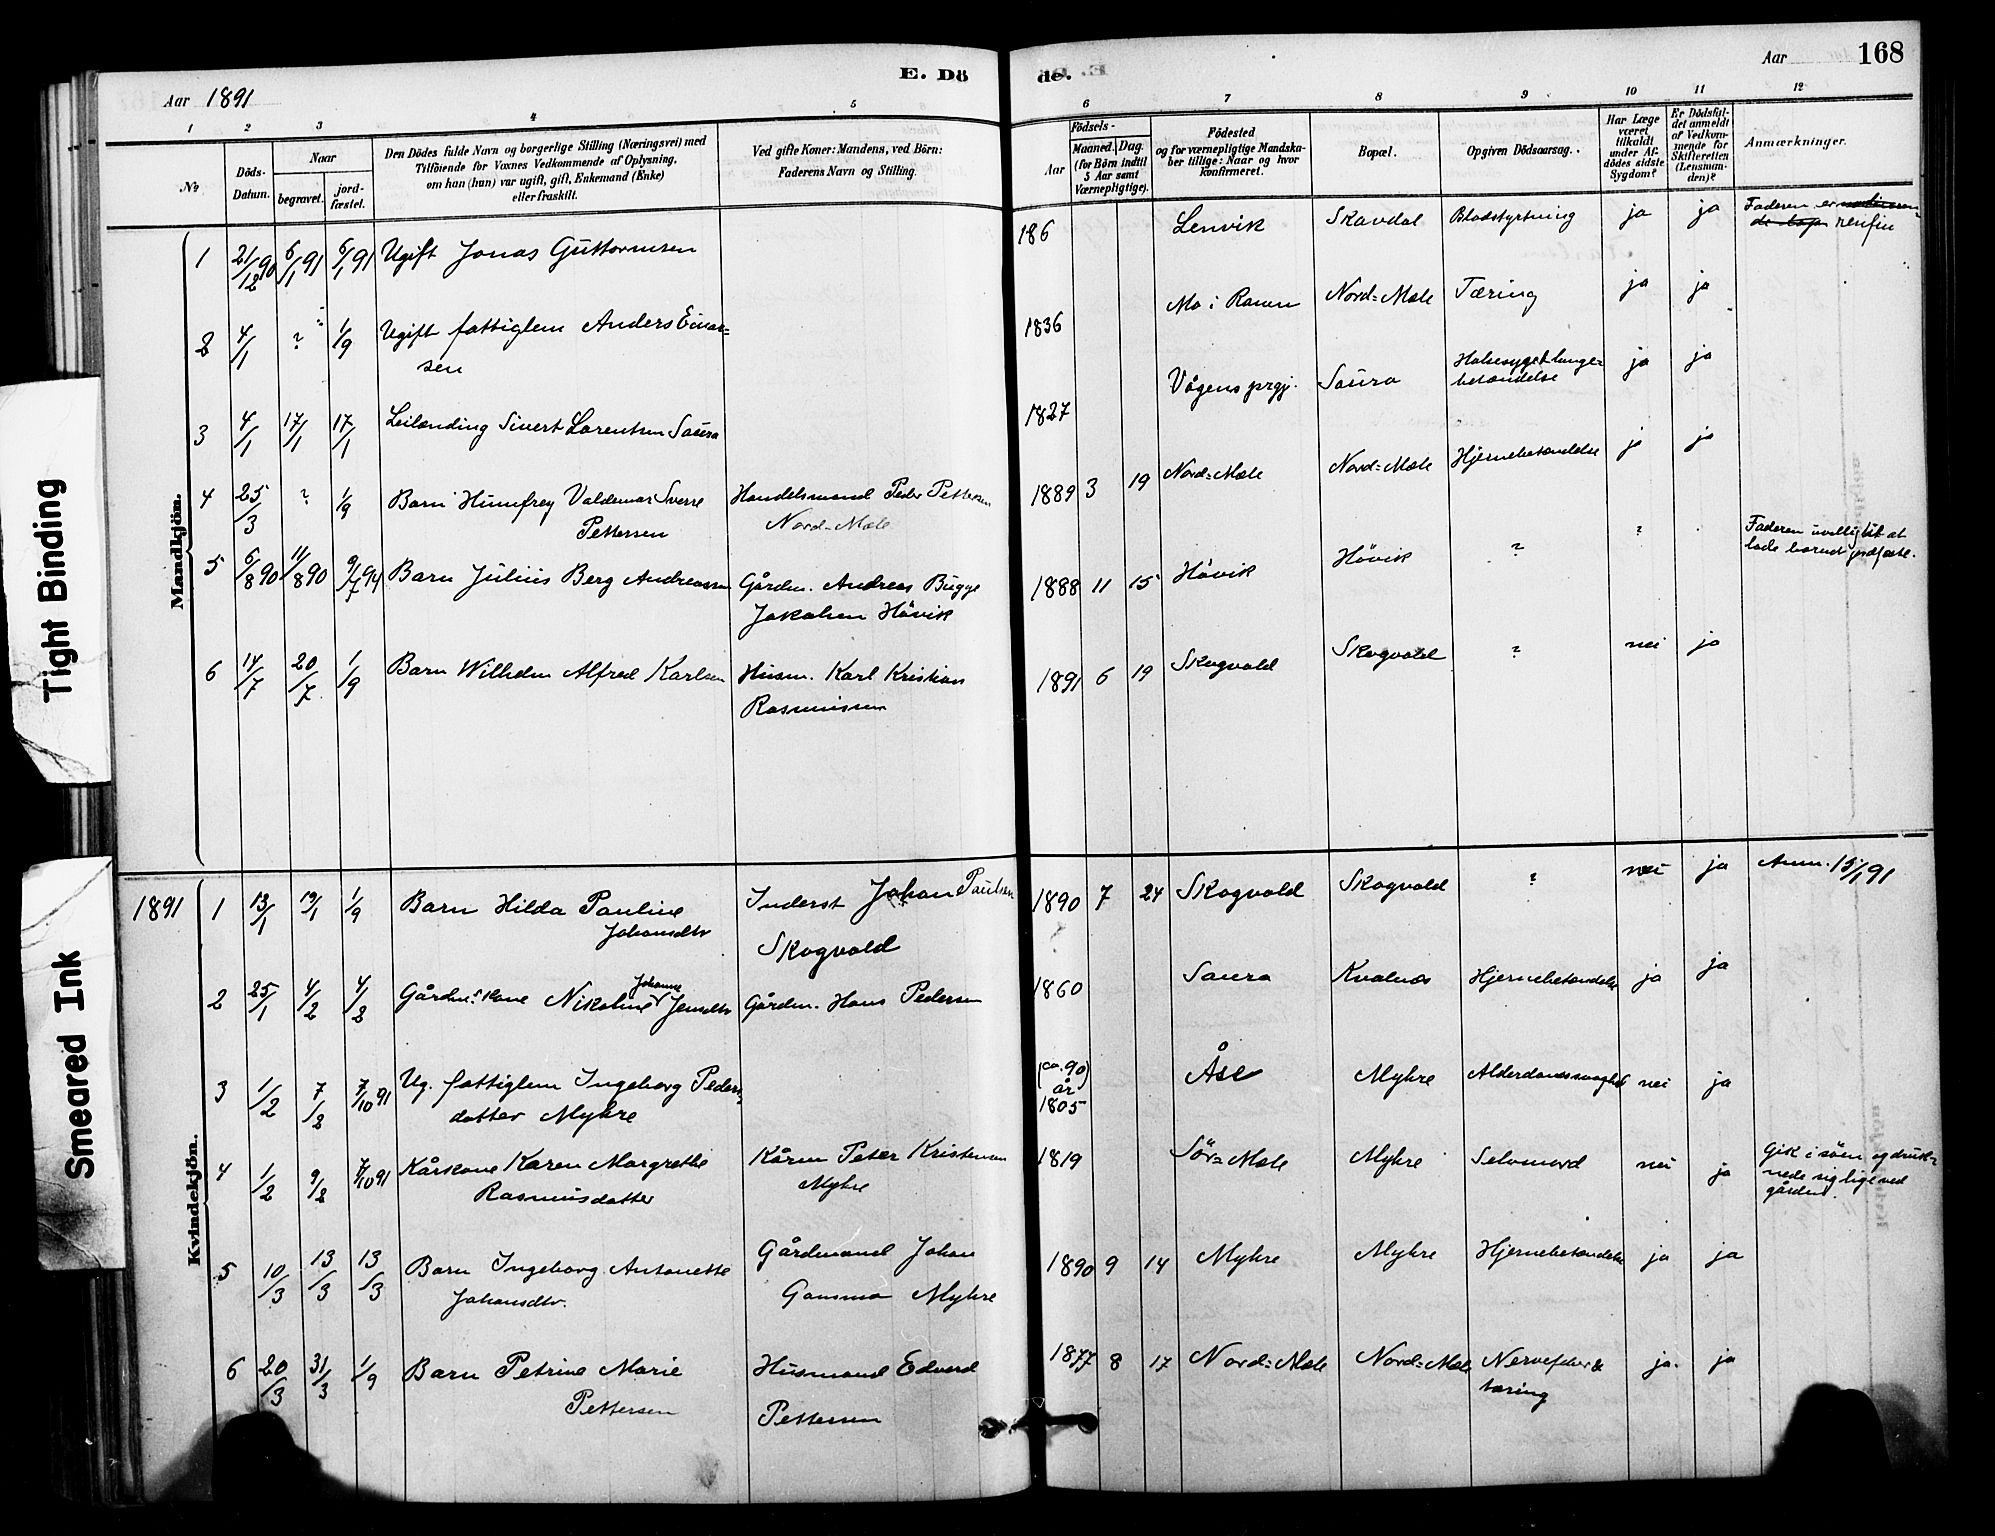 Tight Binding
Smeared Ink
E. Dö
de.
Aar
168
Aar 1891
1
2
3
4
5
6
7
8
9
10
11
12
№
Döds-
Datum.
Naar
begravet.
jord-
fæstet.
Den Dödes fulde Navn og borgerlige Stilling (Næringsvei) med
Tilföiende for Voxnes Vedkommende af Oplysning,
om han (hun) var ugift, gift, Enkemand (Enke)
eller fraskilt.
Ved gifte Koner: Mandens, ved Börn:
Faderens Navn og Stilling.
Födsels-
Aar
Maaned. Dag.
(for Börn indtil
5 Aar samt
Værnepligtige).
Födested
og for værnepligtige Mandska-
ber tillige: Naar og hvor
konfirmeret.
Bopæl.
Opgiven Dödsaarsag.
Har Læge
været
tilkaldt
under Af-
dödes sidste
Sygdom?
Er Dödsfal-
det anmeldt
af Vedkom-
mende for
Skifteretten
(Lensman-
den)?
Anmærkninger.
Mandkjön.
1 21/12 90 6/1 91 6/1 91 Ugift Jonas Guttormsen 186 Lenvik Skavdal Blodstyrtning ja ja Faderen er
2 4/1 ? 1/9 Ugift fattiglem Anders Einar-
sen 1836 Mo i Ranen Nord-Mele Tæring ja ja
3 4/1 17/1 17/1 Leilænding Sivert Lorentsen Saura 1827 Vågens prgj. Saura Halsesyge & lunge-
betændelse ja ja
4 25/3 ? 1/9 Barn Humfrey Valdemar Sverre
Pettersen Handelsmand Peder Pettersen
Nord-Mele 1889 3 19 Nord-Mele Nord-Mele Hjernebetændelse ja ja
5 6/8 90 11/8 90 9/7 94 Barn Julius Berg Andreassen Gårdm. Andreas Bugge
Jakobsen Hövik 1888 11 15 Hövik Hövik ? ? Faderen uvillig til at
lade barnet jordfæste.
6 14/7 20/7 1/9 Barn Wilhelm Alfred Karlsen Husm. Karl Kristian
Rasmussen 1891 6 19 Skogvold Skogvold ? nei ja
Kvindekjön.
1891 1 13/1 19/1 1/9 Barn Hilda Pauline
Johansdtr Inderst Johan Paulsen
Skogvold 1890 7 24 Skogvold Skogvold ? nei ja Anm. 15/1 91
2 25/1 4/2 4/2 Gårdm.s kone Nikoline Johanna Jensdtr Gårdm. Hans Pedersen 1860 Saura Kvalnes Hjernebetændelse ja ja
3 1/2 7/2 7/10 91 Ug. fattiglem Ingeborg Peders-
datter Myhre (ca. 90)
år
1805 Åse Myhre Alderdomssvaghed nei ja
4 1/2 9/2 7/10 91 Kårkone Karen Margrethe
Rasmusdatter Kårm Peter Kristensen
Myhre 1819 Sör-Mele Myhre Selvmord nei ja Gik i söen og druk-
nede sig lige ved
gården.
5 10/3 13/3 13/3 Barn Ingeborg Antonette
Johansdtr. Gårdmand Johan
Gamma Myhre 1890 9 14 Myhre Myhre Hjernebetændelse ja ja
6 20/3 31/3 1/9 Barn Petrine Marie
Pettersen Husmand Edvard
Pettersen 1877 8 17 Nord-Mele Nord-Mele Nervefeber &
tæring ja ja